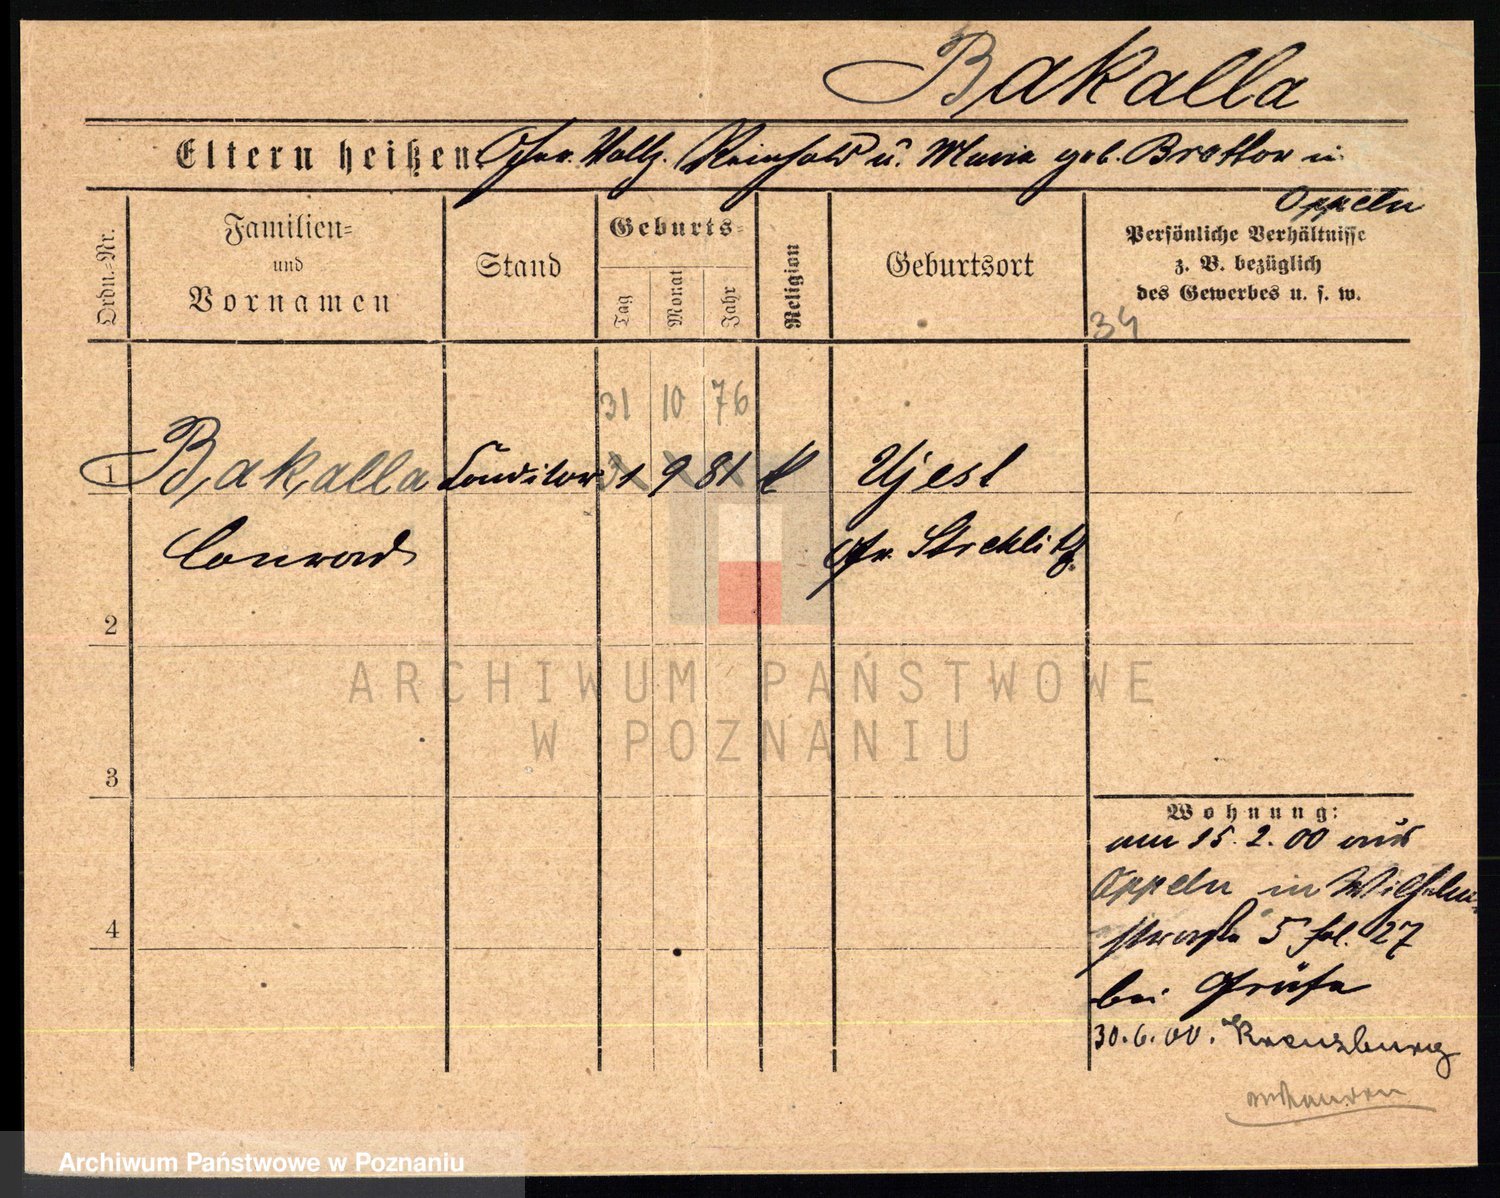 Bakalla
Eltern heißen Ger. Vollz. Reinhold u. Maria geb. Brattor in
Oppeln
Ordn.-Nr.
Familien-
und
Vornamen
Stand
Geburts-
Tag
Monat
Jahr
Religion
Geburtsort
Persönliche Verhältnisse
z. B. bezüglich
des Gewerbes u. s. w.
34
31 10 76
1 Bakalla Conditor 31 9 81 k Ujest
Conrad Gr. Strehlitz
2
ARCHIWUM PAŃSTWOWE
W POZNANIU
3
Wohnung:
am 15. 2. 00 aus
Oppeln in Wilhelm-
straße 5 fol. 27
4
bei Gräfe
30.6.00. Kreuzburg
Archiwum Państwowe w Poznaniu